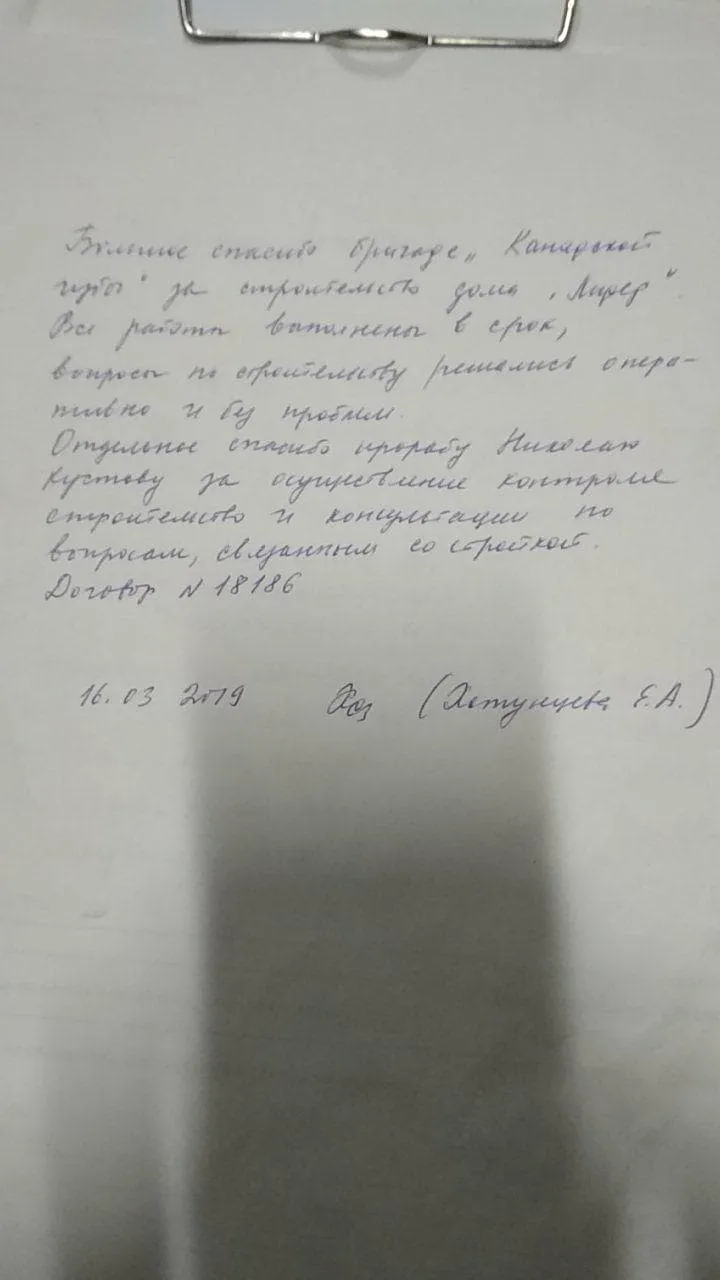 Большое спасибо бригаде „Канадской
избы" за строительство дома „Лидер".
Все работы выполнены в срок,
вопросы по строительству решались опера-
тивно и без проблем.
Отдельное спасибо прорабу Николаю
Кустову за осуществление контроля
строительство и консультации по
вопросам, связанным со стройкой.
Договор N 18186
16.03 2019 (Хатунцева Е.А.)